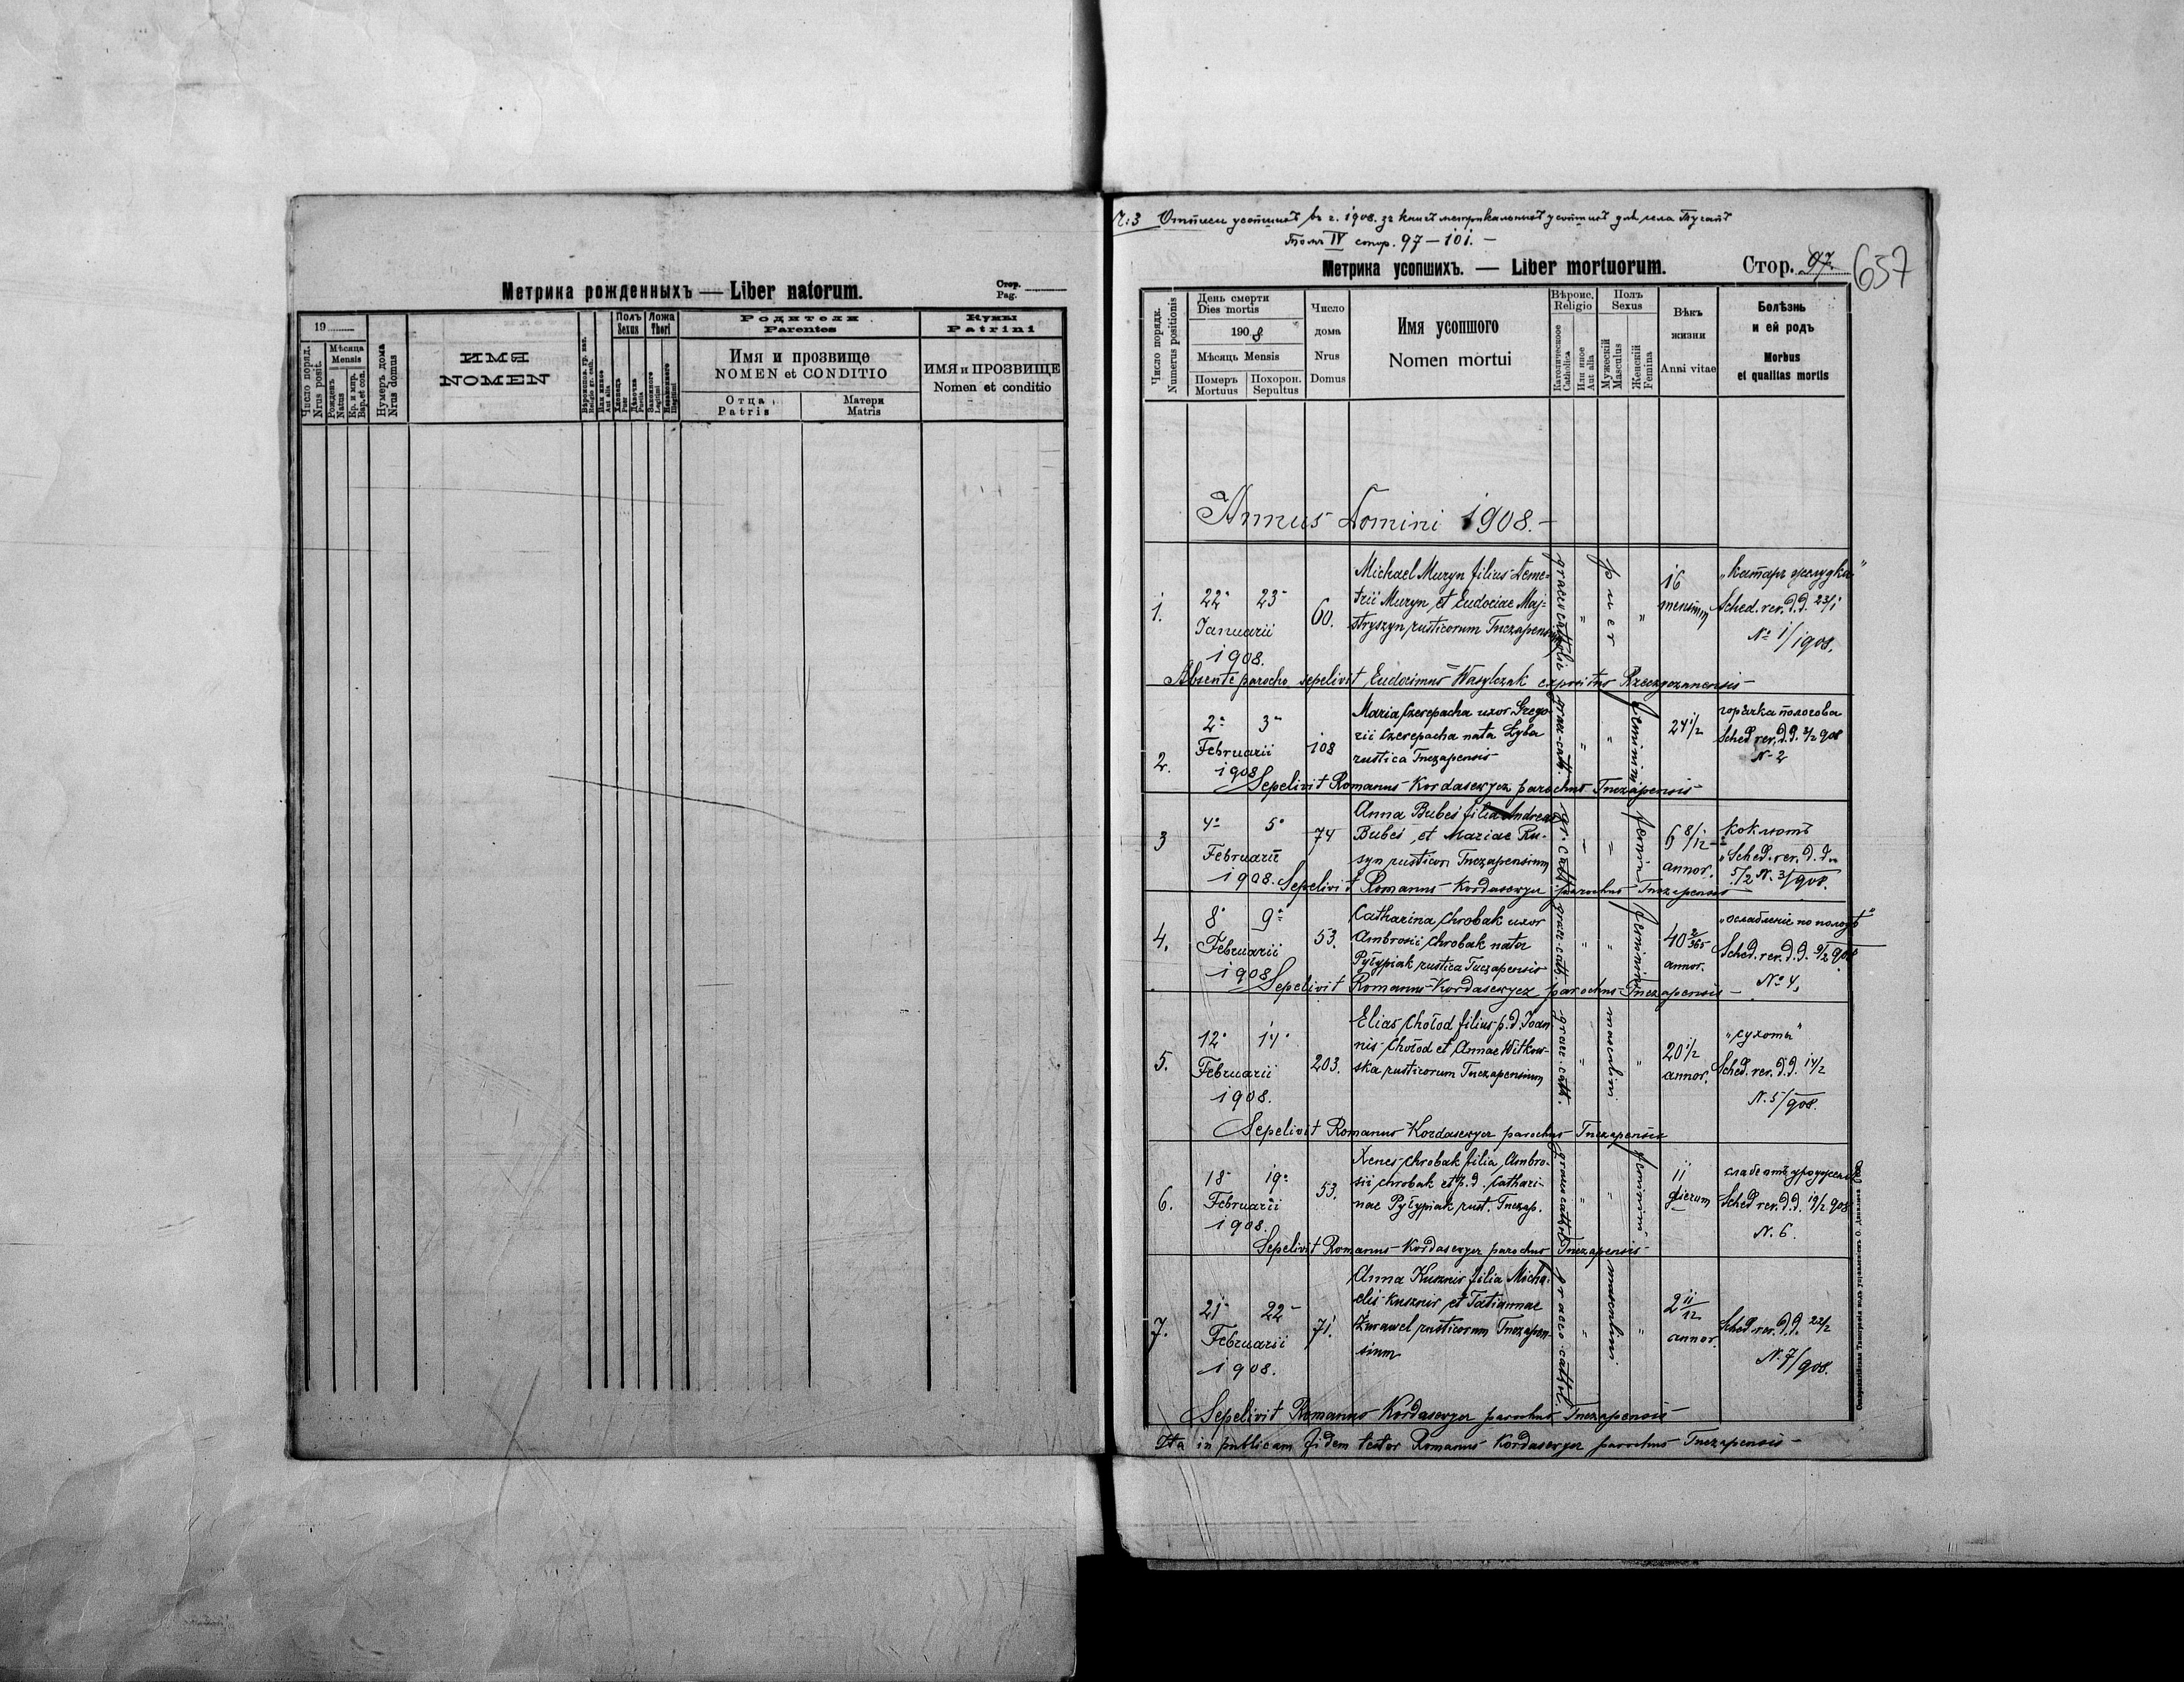 Метрика рожденныхъ — Liber natorum.
Стор.
Pag.
19
Число поряд.
Nrus posit.
Мѣсяца
Mensis
Рожденъ
Natus
Кр. и мѵр.
Bap. et con.
Нумеръ дома
Nrus domus
ИМЯ
NOMEN
Или инное
Aut alia
Полъ
Sexus
Хлопецъ
Puer
Дѣвочка
Puella
Ложа
Thori
Законного
Legitimi
Незаконного
Illegitimi
Родители
Parentes
Имя и прозвище
NOMEN et CONDITIO
Отца
Patris
Матери
Matris
Кумы
Patrini
ИМЯ и ПРОЗВИЩЕ
Nomen et conditio
Ч: 3 въ г. 1908. зъ книгъ для села
Томъ IV стор. 97 — 101. —
Метрика усопшихъ. — Liber mortuorum.
Стор. 97.
657
Число порядк.
Numerus positionis
День смерти
Dies mortis
1908
Мѣсяцъ Mensis
Померъ
Mortuus
Похорон.
Sepultus
Число
дома
Nrus
Domus
Имя усопшого
Nomen mortui
Вѣроис.
Religio
Католическое
Catholica
Или иное
Aut alia
Полъ
Sexus
Мужескій
Masculus
Женскій
Femina
Вѣкъ
жизни
Anni vitae
Болѣзнь
и ей родъ
Morbus
et qualitas mortis
Annus Domini 1908. —
1.
22 23
Januarii
1908.
60.
Michael Muzyn filius Deme-
trii Muzyn, et Eudociae Maj-
stryszyn, rusticorum Tuczapensium
graeco catholic
"
puer
"
16
mensium
„Катаръ желудка"
Sched. rev. d.d. 23/1
No 1/1908.
Absente parocho sepelivit Eudocimus Wasylczak expositus
2.
2 3
Februarii
1908
108
Maria Czerepacha uxor Grego-
rii Czerepacha nata Zyba
rustica Tuczapensis
graec-cath.
"
"
feminini
24 1/2
горячка пологова
Sched rev. d.d. 3/2 908
N. 2
Sepelivit Romanus Kordasewycz parochus Tuczapensis
3
4 5
Februarii
1908.
74
Anna Bubes filia Andreae
Bubes, et Mariae Ru-
syn rusticor. Tuczapensium
gr. cath
feminini
6 8/12
annor.
коклюшъ
„Sched. rev. d. d.
5/2 N. 3/908.
Sepelivit Romanus Kordasewycz parochus Tuczapensis
4.
8 9
Februarii
1908
53.
Catharina Chrobak uxor
Ambrosii Chrobak nata
Pyłypiak rustica Tuczapensis
graec-cath.
"
"
feminini
40 2/365
annor.
„ослабленіе по пологѣ"
Sched. rev. d.d. 9/2 908
No 4.
Sepelivit Romanus Kordasewycz parochus Tuczapensis —
5.
12 14
Februarii
1908.
203.
Elias Chołod filius p.d. Joan-
nis Chołod et Annae Witkow-
ska rusticorum Tuczapensium
graec. cath.
"
masculini
"
20 1/2
annor.
„сухоты"
Sched. rev. d.d. 14/2
N. 5/908.
Sepelivit Romanus Kordasewycz parochus Tuczapensis
6.
18 19
Februarii
1908.
53.
Xenes Chrobak filia Ambro-
sii Chrobak et p.d. Cathari-
nae Pyłypiak rust. Tuczap.
graeco cathol
"
"
feminini
11
dierum
Sched rev. d.d. 19/2 908
N. 6.
Sepelivit Romanus Kordasewycz parochus Tuczapensis
7.
21 22
Februarii
1908.
71.
Anna Kusznir filia Micha-
elis Kusznir, et Tatiannae
Żurawel rusticorum Tuczapen-
sium
graeco cathol.
"
masculini
"
2 11/12
annor.
Sched. rev. d.d. 22/2
N. 7/908.
Sepelivit Romanus Kordasewycz parochus Tuczapensis
Ita in publicam fidem testor Romanus Kordasewycz parochus Tuczapensis —